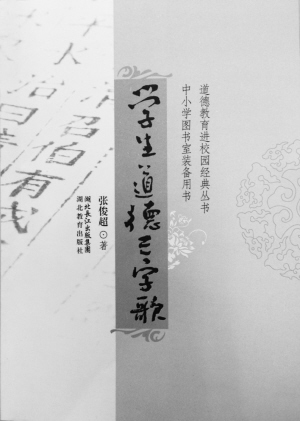 道德教育进校园经典丛书
中小学图书室装备用书
学生道德三字歌
张俊超 ⊙ 著
湖北长江出版集团
湖北教育出版社